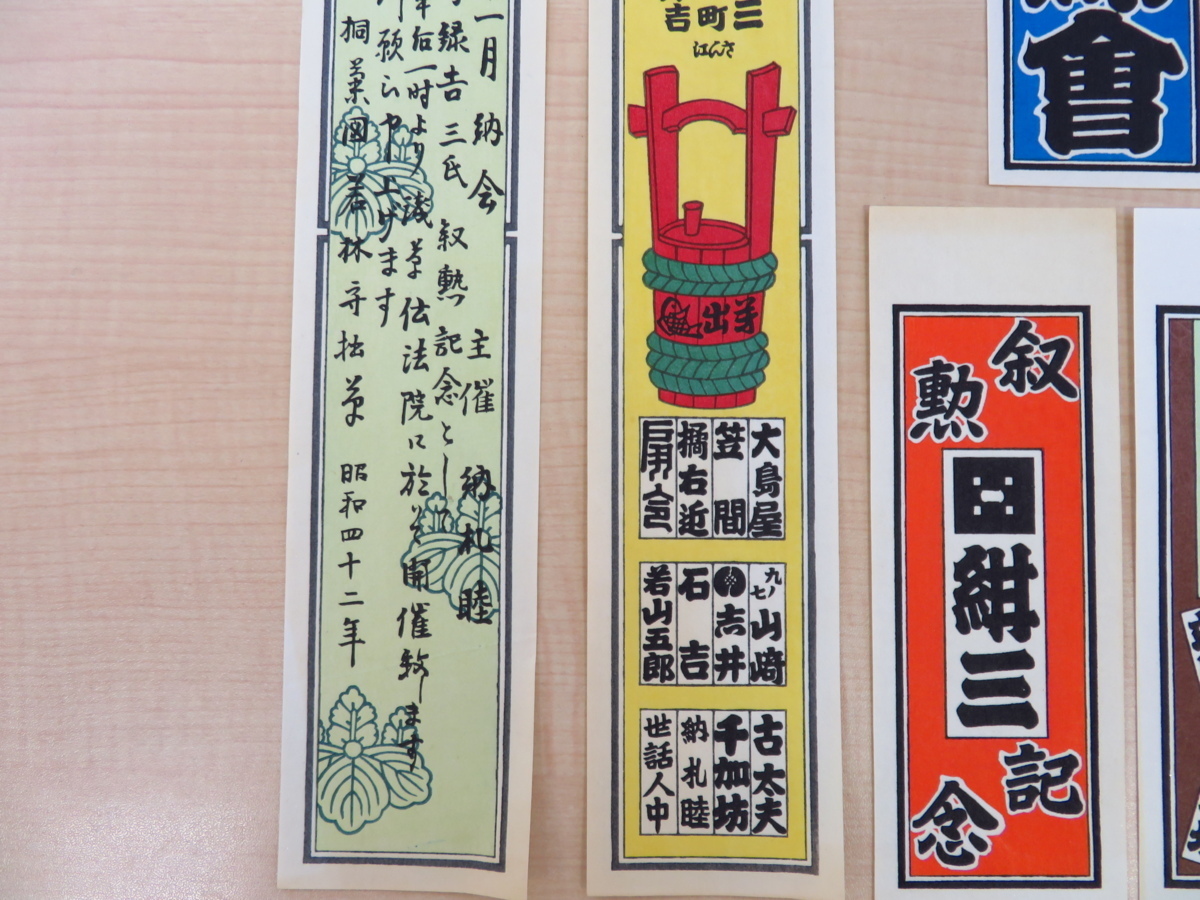 一月納会 主催 納札睦
録吉三氏 叙勲記念として
后一時より浅草伝法院に於て開催致します
願ら
上げます
桐葉図 若林守拙草 昭和四十二年
三
町
吉
はんさ
芽出
大島屋
笠間
橘右近
九ノ七 山崎
吉井
石吉
若山五郎
古太夫
千加坊
納札睦
世話人中
會
叙勲
紺三
記念